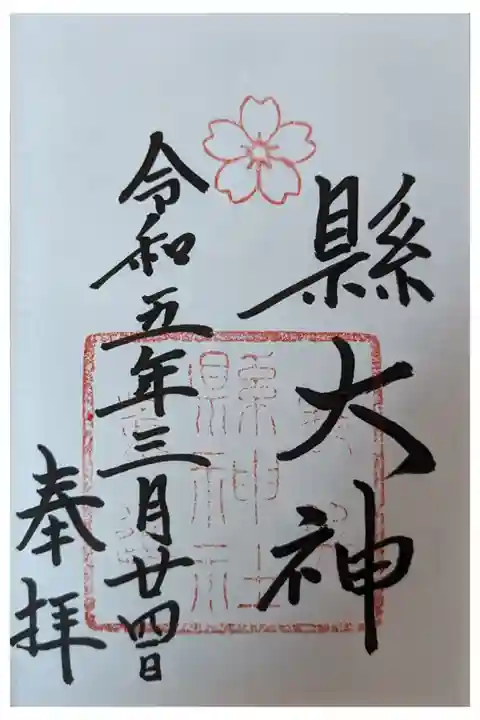 縣大神
令和五年三月廿四日
奉拝
縣神社